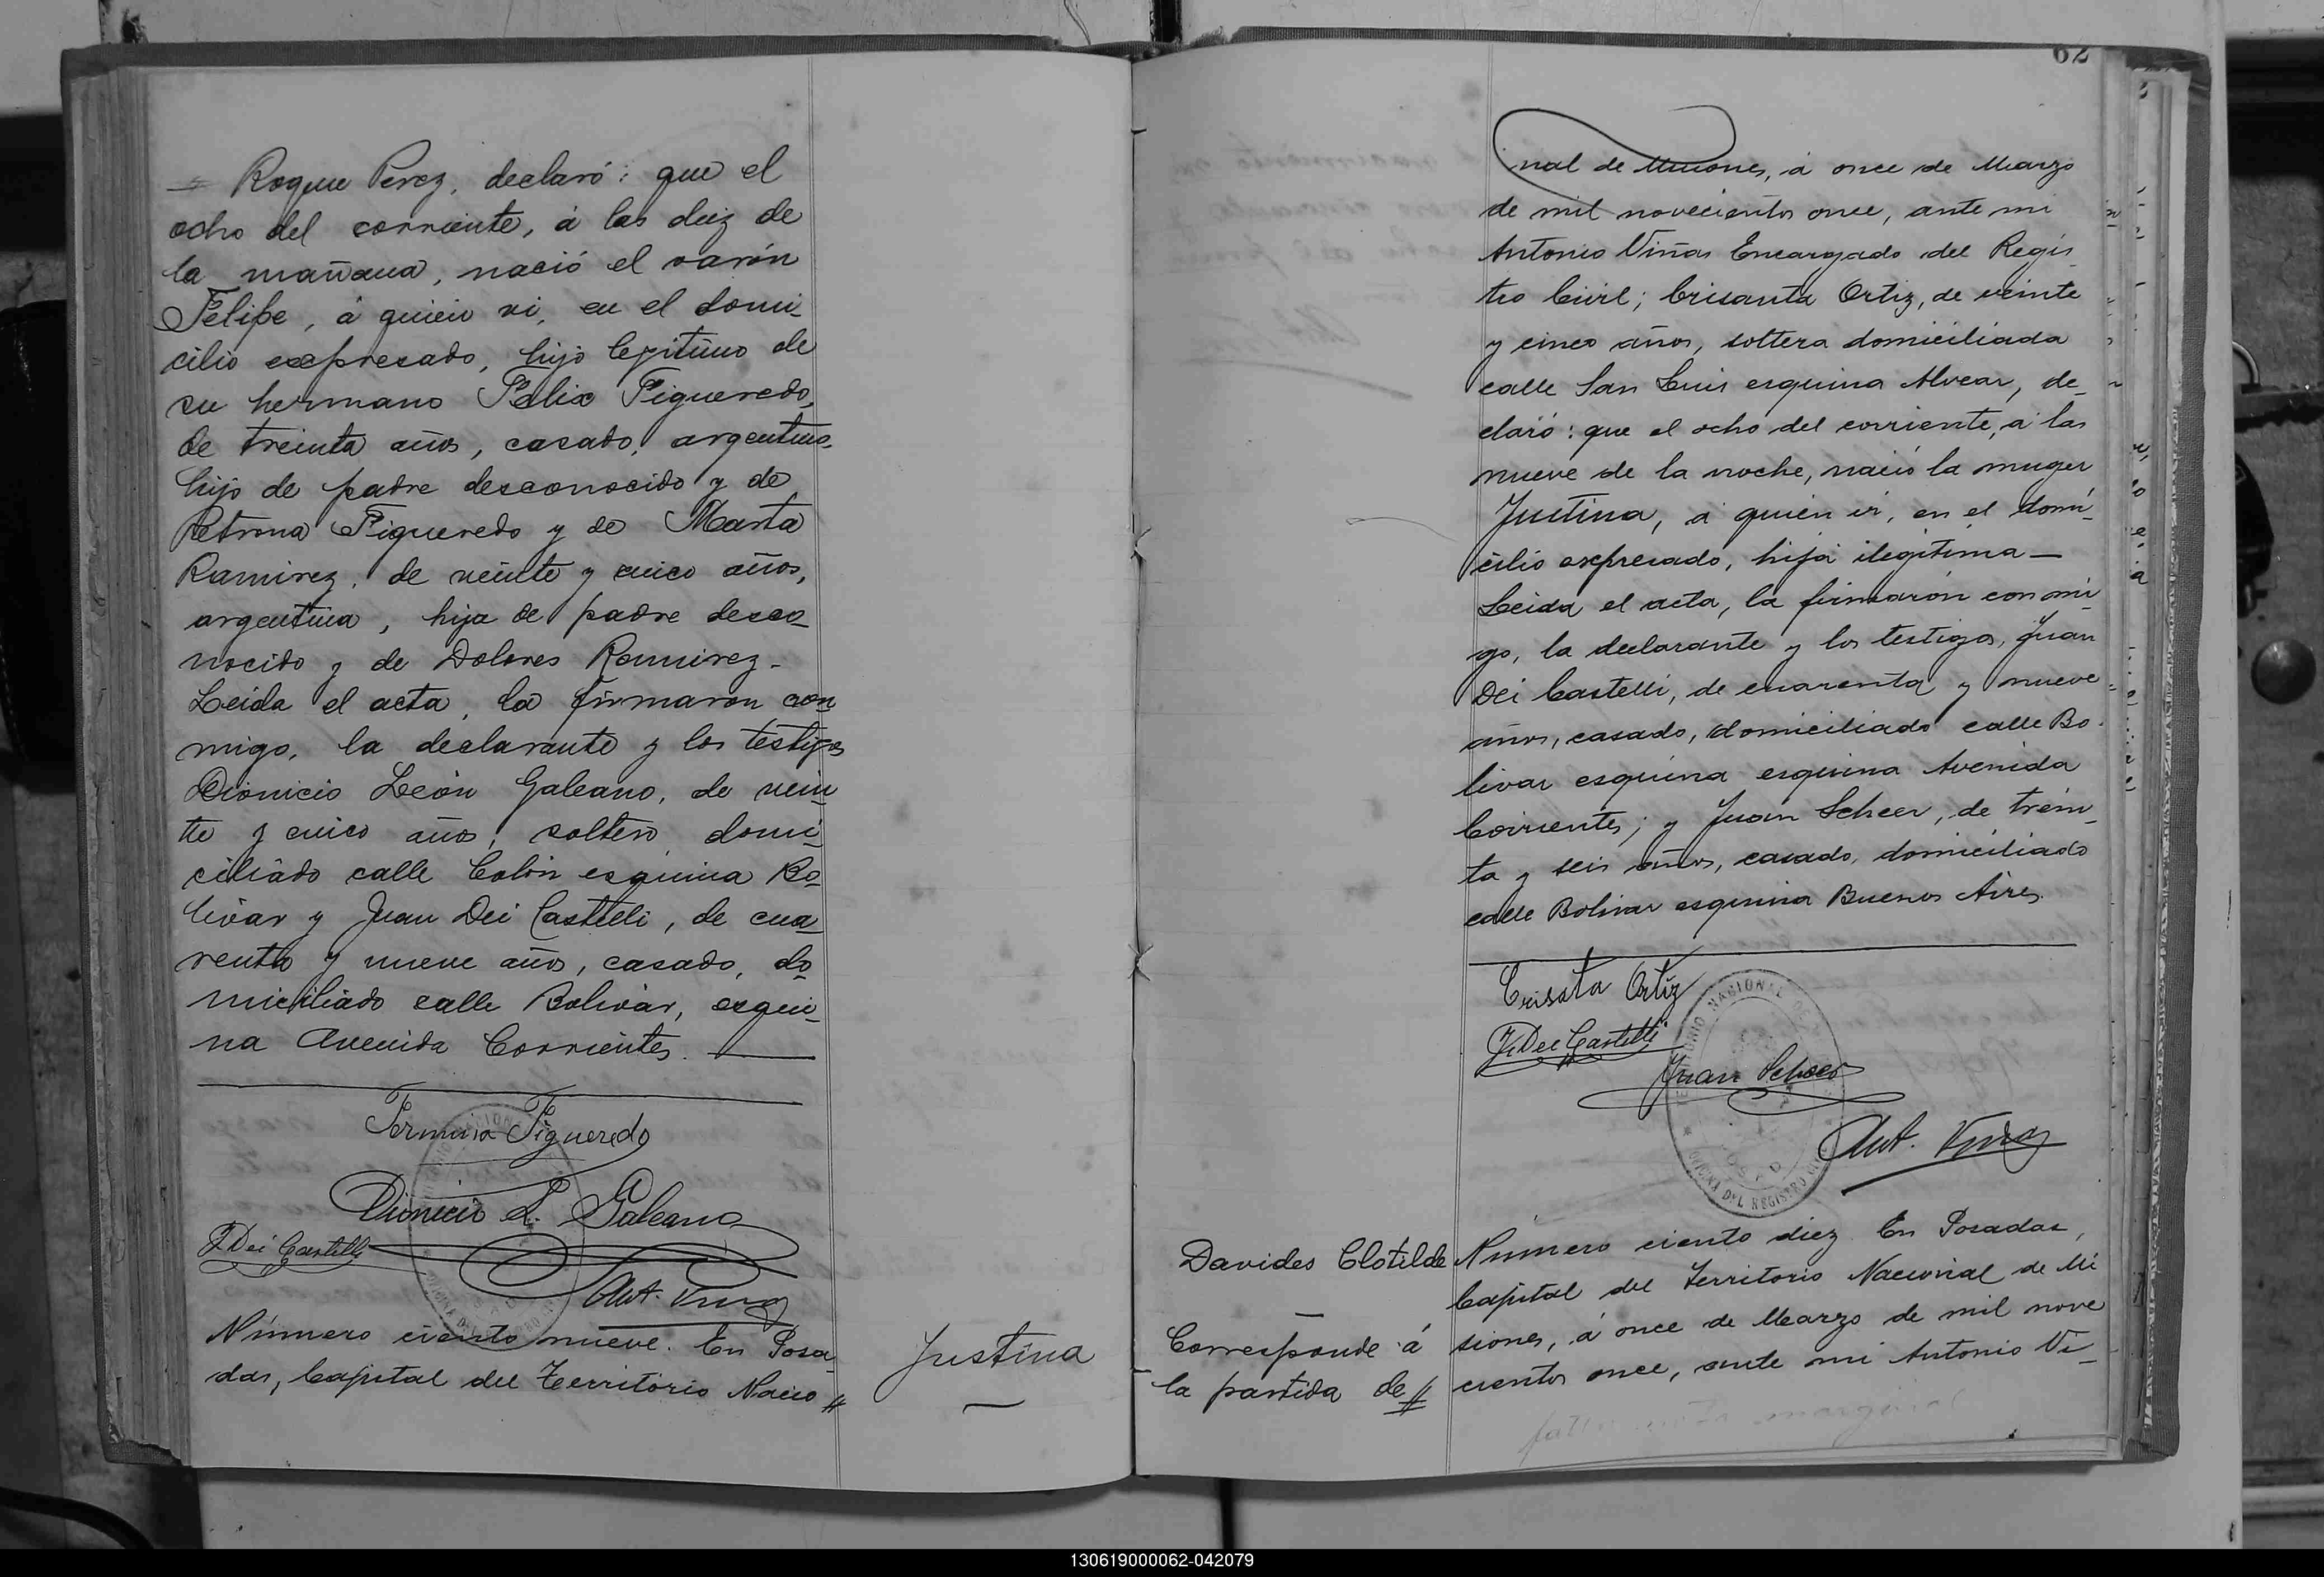 Roque Perez, declaró: que el
ocho del corriente, á las diez de
la mañana, nació el varón
Felipe, á quien vi, en el domi-
cilio expresado, hijo legitimo de
su hermano Felix Figueredo,
de treinta años, casado, argentino,
hijo de padre desconocido y de
Petrona Figueredo y de Marta
Ramirez, de veinte y cinco años,
argentina, hija de padre desco-
nocido y de Dolores Ramirez.
Leida el acta, la firmaron con
migo, la declarante y los testigos
Dionicio León Galeano, de vein-
te y cinco años, soltero, domi-
ciliado calle Colón esquina Bo-
livar y Juan Dei Castelli, de cua-
renta y nueve años, casado, do-
miciliado calle Bolivar, esqui-
na Avenida Corrientes.
Fermina Figueredo
Dionicio L. Galeano
J. Dei Castelli
Ant. Viñas
Número ciento nueve. En Posa-
das, Capital del Territorio Nacio //
Justina
62
nal de Misiones, á once de Marzo
de mil novecientos once, ante mi
Antonio Viñas Encargado del Regis-
tro Civil; Crisanta Ortiz, de veinte
y cinco años, soltera domiciliada
calle San Luis esquina Alvear, de-
claró: que el ocho del corriente, á las
nueve de la noche, nació la muger
Justina, á quien vi, en el domi-
cilio expresado, hija ilegitima —
Leida el acta, la firmarón con mi-
go, la declarante y los testigos, Juan
Dei Castelli, de cuarenta y nueve
años, casado, domiciliado calle Bo-
livar esquina esquina Avenida
Corrientes; y Juan Scheer, de trein-
ta y seis años, casado, domiciliado
calle Bolivar esquina Buenos Aires.
Crisata Ortiz
J. Dei Castelli
Juan Scheer
Ant. Viñas
Davides Clotilde
Corresponde á
la partida de //
Número ciento diez. En Posadas,
Capital del Territorio Nacional de Mi
siones, á once de Marzo de mil nove
cientos once, ante mi Antonio Vi-
marginal
130619000062-042079